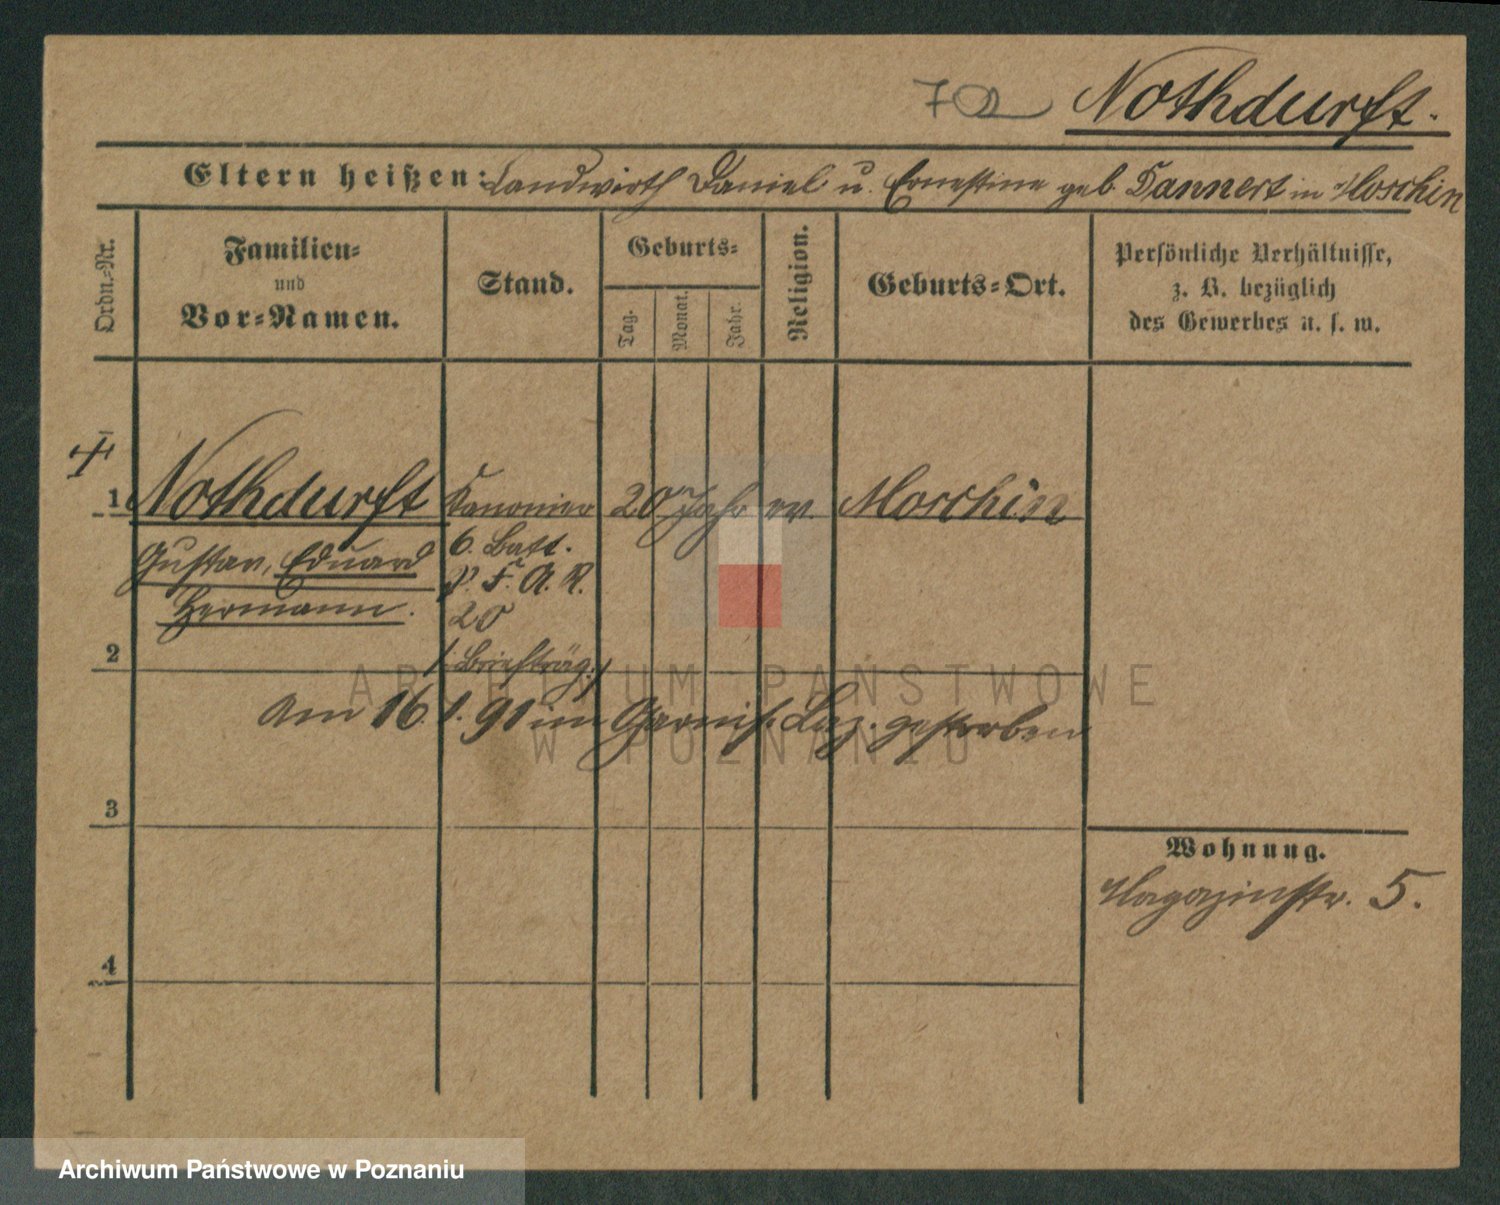 702 Nothdurft.
Eltern heißen: Landwirth Daniel u. Ernestine geb. Dannert in Moschin
Ordn.-Nr.
Familien-
und
Vor-Namen.
Stand.
Geburts-
Tag.
Monat.
Jahr.
Religion.
Geburts-Ort.
Persönliche Verhältnisse,
z. B. bezüglich
des Gewerbes u. s. w.
1 Nothdurft Kanonier 20 Jahr ev. Moschin
Gustav, Eduard
Hermann.
6. Batt.
P. F. A. R.
20
2 /: Briefträg. :/
Am 16. 1. 91 im Garnis. Laz. gestorben
3
Wohnung.
Magazinstr. 5.
4
ARCHIWUM PAŃSTWOWE
W POZNANIU
Archiwum Państwowe w Poznaniu